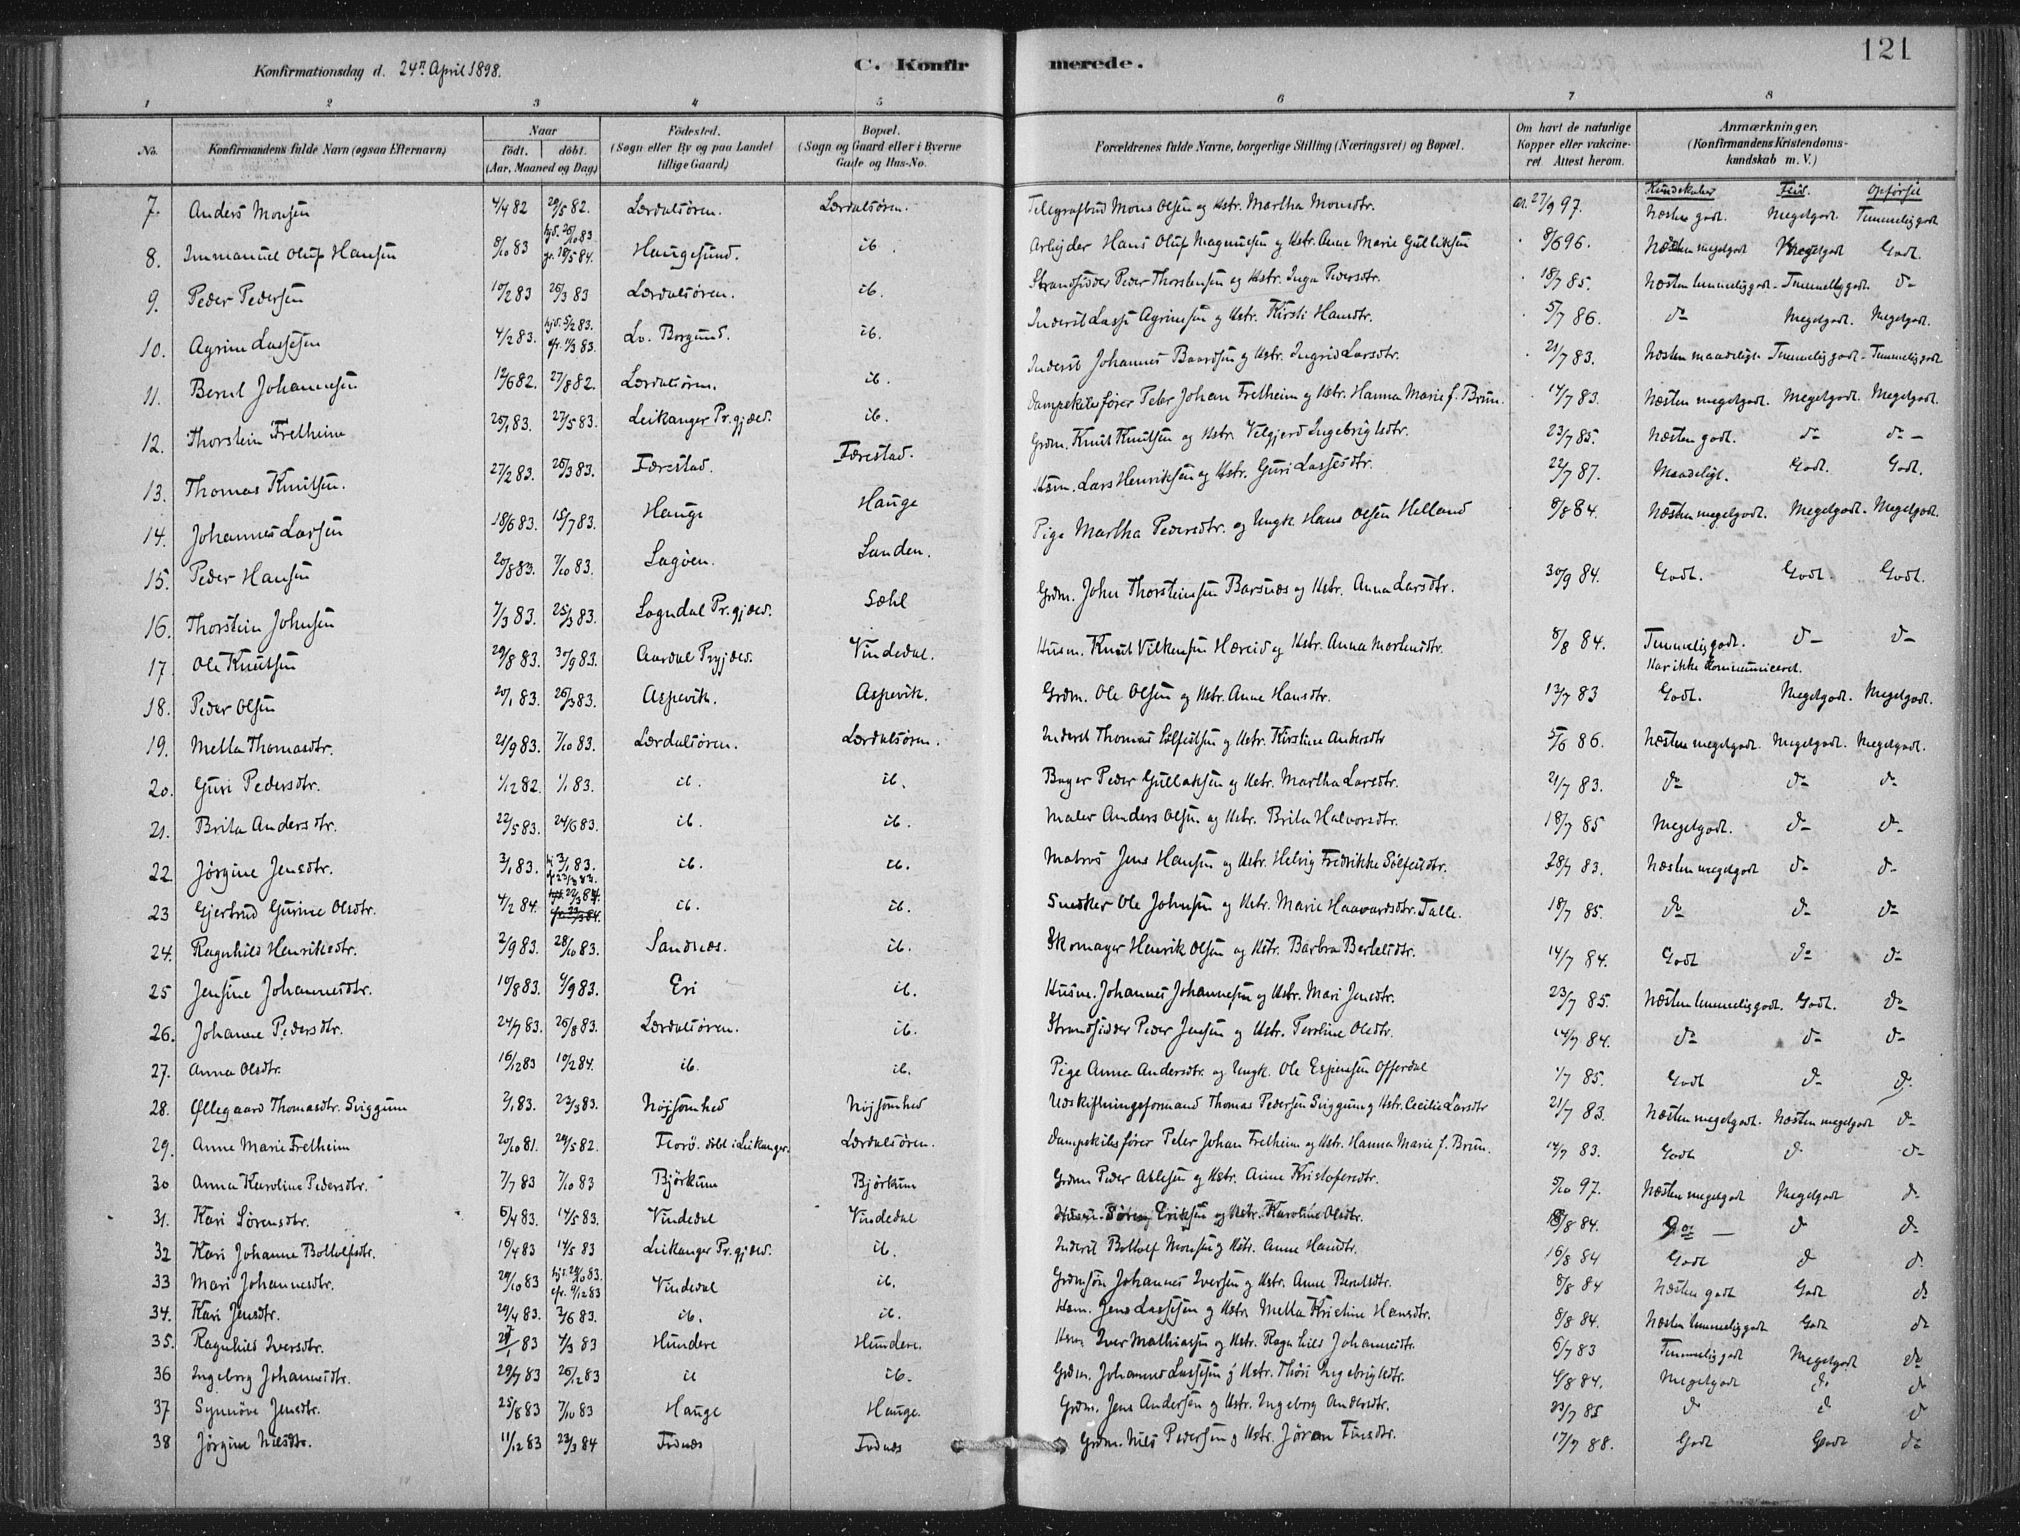 121
Konfirmationsdag d. 24n April 1898.
C. Konfirmerede.
1 2 3 4 5 6 7 8
No. Konfirmandens fulde Navn (ogsaa Efternavn) Naar födt. döbt. (Aar, Maaned og Dag) Födested. (Sogn eller By og paa Landet tillige Gaard) Bopæl. (Sogn og Gaard eller i Byerne Gade og Hus-No. Forældrenes fulde Navne, borgerlige Stilling (Næringsvei) og Bopæl. Om havt de naturlige Kopper eller vakcineret. Attest herom. Anmærkninger. (Konfirmandens Kristendomskundskab m. V.)
Kundskaber Flid. Opførsel
7. Anders Monsen 4/4 82 29/5 82. Lærdalsören. Lærdalsören. Telegrafbud Mons Olsen og Hstr. Martha Monsdtr. 27/9 97. Næsten godt. Megetgodt. Temmeliggodt
8. Immanuel Oluf Hansen 8/10 83 hjd. 26/10 83 Haugesund. ib. Arbejder Hans Oluf Magnusen og Hstr. Anne Marie Gulliksen 8/6 96. Næsten megetgodt Megetgodt Godt.
9. Peder Pedersen 10/2 83 26/3 83 Lærdalsören. ib. Strandsidder Peder Thorstensen og Hstr. Inga Pedersdtr. 18/7 85. Næsten temmeliggodt. Temmeliggodt. do
10. Agrim Lassesen 4/2 83. hjd. 5/2 83. fr. 11/3 83. Lv. Borgund. ib. Inderst Lasse Agrimsen og Hstr. Kirsti Hansdtr. 5/7 86. do Megetgodt. Megetgodt.
11. Bernt Johannesen 12/6 82. 27/8 82. Lærdalsören. ib. Inderst Johannes Baardsen og Hstr. Ingrid Larsdtr. 21/7 83. Næsten maadeligt. Temmeliggodt. Temmeliggodt
12. Thorstein Fretheim 25/1 83. 27/5 83. Leikanger Pr.gjæld. ib. Dampskibsfører Peter Johan Fretheim og Hstr. Hanna Marie f. Brun. 14/7 83. Næsten megetgodt. Megetgodt. Megetgodt.
13. Thomas Knutsen. 27/2 83. 26/3 83. Færestad. Færestad. Grdm. Knut Knutsen og Hstr. Velgjerd Ingebrigtsdtr. 23/7 85. Næsten godt. do do
14. Johannes Larsen 18/6 83. 15/7 83. Hauge Hauge Hsm. Lars Henriksen og Hstr. Guri Lassesdtr. 22/7 87. Maadeligt. Godt. Godt.
15. Peder Hansen 20/8 83. 7/10 83. Lagöen. Sanden. Pige Martha Pedersdtr. og Ungk. Hans Olsen Helland 8/8 84. Næsten megetgodt. Megetgodt. Megetgodt.
16. Thorstein Johnsen 7/3 83. 25/3 83. Sogndal Pr.gjæld. Sæhl Grdm. John Thorsteinsen Barsnæs og Hstr. Anna Larsdtr. 30/9 84. Godt. Godt. Godt.
17. Ole Knutsen 29/8 83. 30/9 83. Aardal Prgjæld. Vindedal. Husm. Knut Vilkensen Hæreid og Hstr. Anna Mortensdtr. 8/8 84. Temmeliggodt. Har ikke kommuniceret. do do
18. Peder Olsen 20/1 83. 26/3 83. Aspevik. Aspevik. Grdm. Ole Olsen og Hstr. Anne Hansdtr. 13/7 83 Godt. Megetgodt. Megetgodt.
19. Metta Thomasdtr. 21/9 83. 7/10 83. Lærdalsören. Lærdalsören. Inderst Thomas Sölfestsen og Hstr. Kirstine Andersdtr 5/6 86. Næsten megetgodt. Megetgodt. Megetgodt.
20. Guri Pedersdtr. 1/12 82. 1/1 83. ib. ib. Bager Peder Gullaksen og Hstr. Martha Larsdtr. 21/7 83. do do do
21. Brita Andersdtr. 22/5 83. 24/6 83. ib. ib. Maler Anders Olsen og Hstr. Brita Halvorsdtr. 18/7 85 Megetgodt. do do
22. Jørgine Jensdtr. 3/1 83. 3/1 83. ib. ib. Matros Jens Hansen og Hstr. Helvig Fredrikke Sölfestdtr. 28/7 83. Næsten megetgodt do do
23 Gjertrud Gurine Olsdtr. 4/2 84. ib. ib. Snedker Ole Johnsen og Hstr. Marie Haavardsdtr. Talle. 18/7 85. do do do
24. Ragnhild Henriksdtr. 2/9 83. 28/10 83. Sandnæs. ib. Skomager Henrik Olsen og Hstr. Barbra Bertelsdtr. 14/7 84. Godt do do
25 Jensine Johannesdtr. 10/8 83. 9/9 83. Eri ib. Husm. Johannes Johannesen og Hstr. Mari Jensdtr. 23/7 85. Næsten temmeliggodt. Godt. do
26. Johanne Pedersdtr. 24/7 83. 26/8 83. Lærdalsören. ib. Strandsidder Peder Jensen og Hstr. Teroline Olsdtr. 14/7 84. do do do
27. Anna Olsdtr. 16/12 83 10/2 84. ib. ib. Pige Anna Andersdtr. og Ungk. Ole Espensen Offerdal 1/7 85. Godt do do
28. Øllegaard Thomasdtr. Sviggum 2/1 83. 23/3 83. Nøjsomhed Nøjsomhed Udskiftningsformand Thomas Pedersen Sviggum og Hstr. Cecilie Larsdtr 21/7 83. Næsten megetgodt. Næsten megetgodt do
29. Anne Marie Fretheim 20/10 81. 29/5 82. Florö. döbt i Leikanger. Lærdalsören. Dampskibsfører Peter Johan Fretheim og Hstr. Hanna Marie f. Brun. 14/7 83. Godt do do
30 Anna Karoline Pedersdtr. 7/7 83 7/10 83 Björkum Björkum Grdm Peder Atlesen og Hstr. Anne Kristofersdtr. 5/10 97. Næsten megetgodt Megetgodt do
31. Kari Sörensdtr. 6/4 83 14/5 83. Vindedal Vindedal Husm. Sören Eriksen og Hstr. Karoline Olsdtr. 8/8 84. do do do
32 Kari Johanne Bottolfsdtr. 16/4 83 14/5 83 Leikanger Pr.gjæld. ib. Inderst Bottolf Monsen og Hstr. Anne Hansdtr. 16/8 84 Godt do do
33 Mari Johannesdtr. 29/10 83 hjd. 29/10 83. fr. 9/12 83 Vindedal ib. Grdmsøn Johannes Iversen og Hstr. Anne Berntsdtr. 8/8 84 Næsten godt Godt do
34. Kari Jensdtr. 29/4 83. 3/6 83. ib. ib. Hsm. Jens Lassesen og Hstr. Metta Kristine Hansdtr. 8/8 84. Næsten temmeliggodt Godt do
35. Ragnhild Iversdtr. 83 4/3 83 Hundere Hundere. Hsm Iver Mathiassen og Hstr. Ragnhild Johannesdtr. 6/7 83 Temmeliggodt Megetgodt do
36 Ingeborg Johannesdtr. 29/7 83 26/12 83 ib ib. Grdm. Johannes Lassesen og Hstr. Thöri Ingebrigtsdtr. 4/8 84. Megetgodt do do
37 Synnöve Jensdtr. 25/8 83 7/10 83 Hauge Hauge. Grdm. Jens Andersen og Hstr. Ingeborg Andersdtr. 23/7 85 do do do
38 Jørgine Nilsdtr. 11/12 83 23/3 84 Frdnæs Frdnæs Grdm. Nils Pedersen og Hstr. Jøran Finsdtr. 17/7 88. Godt Godt do